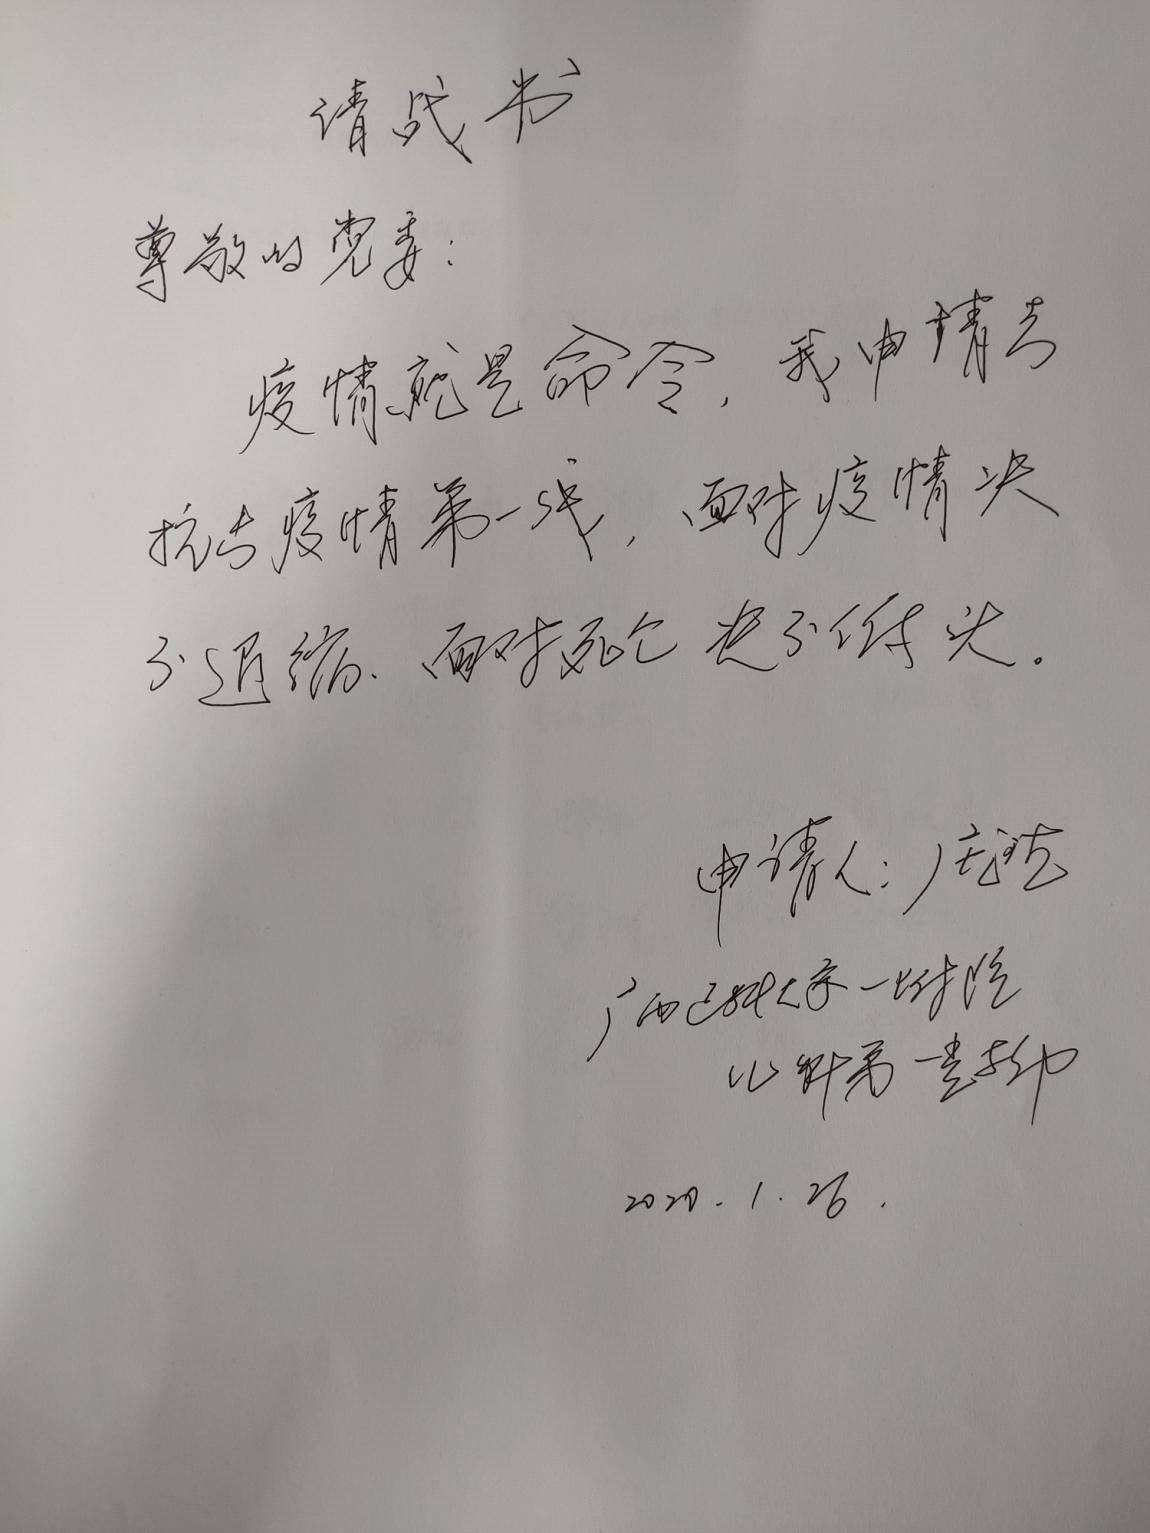 请战书
尊敬的党委：
疫情就是命令，我申请去
抗击疫情第一线，面对疫情决
不退缩、面对死亡决不低头。
申请人：庞
广西医科大学一附院
儿科第一党支部
2020.1.26.